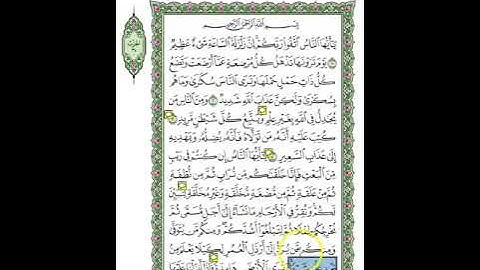 بِسْمِ ٱللَّهِ ٱلرَّحْمَٰنِ ٱلرَّحِيمِ
يَٰٓأَيُّهَا ٱلنَّاسُ ٱتَّقُوا۟ رَبَّكُمْ إِنَّ زَلْزَلَةَ ٱلسَّاعَةِ شَىْءٌ عَظِيمٌ
يَوْمَ تَرَوْنَهَا تَذْهَلُ كُلُّ مُرْضِعَةٍ عَمَّآ أَرْضَعَتْ وَتَضَعُ
كُلُّ ذَاتِ حَمْلٍ حَمْلَهَا وَتَرَى ٱلنَّاسَ سُكَٰرَىٰ وَمَا هُم
بِسُكَٰرَىٰ وَلَٰكِنَّ عَذَابَ ٱللَّهِ شَدِيدٌ وَمِنَ ٱلنَّاسِ مَن
يُجَٰدِلُ فِى ٱللَّهِ بِغَيْرِ عِلْمٍ وَيَتَّبِعُ كُلَّ شَيْطَٰنٍ مَّرِيدٍ
كُتِبَ عَلَيْهِ أَنَّهُۥ مَن تَوَلَّاهُ فَأَنَّهُۥ يُضِلُّهُۥ وَيَهْدِيهِ
إِلَىٰ عَذَابِ ٱلسَّعِيرِ يَٰٓأَيُّهَا ٱلنَّاسُ إِن كُنتُمْ فِى رَيْبٍ
مِّنَ ٱلْبَعْثِ فَإِنَّا خَلَقْنَٰكُم مِّن تُرَابٍ ثُمَّ مِن نُّطْفَةٍ
ثُمَّ مِنْ عَلَقَةٍ ثُمَّ مِن مُّضْغَةٍ مُّخَلَّقَةٍ وَغَيْرِ مُخَلَّقَةٍ لِّنُبَيِّنَ
لَكُمْ وَنُقِرُّ فِى ٱلْأَرْحَامِ مَا نَشَآءُ إِلَىٰٓ أَجَلٍ مُّسَمًّى ثُمَّ
نُخْرِجُكُمْ طِفْلًا ثُمَّ لِتَبْلُغُوٓا۟ أَشُدَّكُمْ وَمِنكُم مَّن يُتَوَفَّىٰ
وَمِنكُم مَّن يُرَدُّ إِلَىٰٓ أَرْذَلِ ٱلْعُمُرِ لِكَيْلَا يَعْلَمَ مِن
وَتَرَى ٱلْأَرْضَ هَامِدَةً فَإِذَآ أَنزَلْنَا عَلَيْهَا